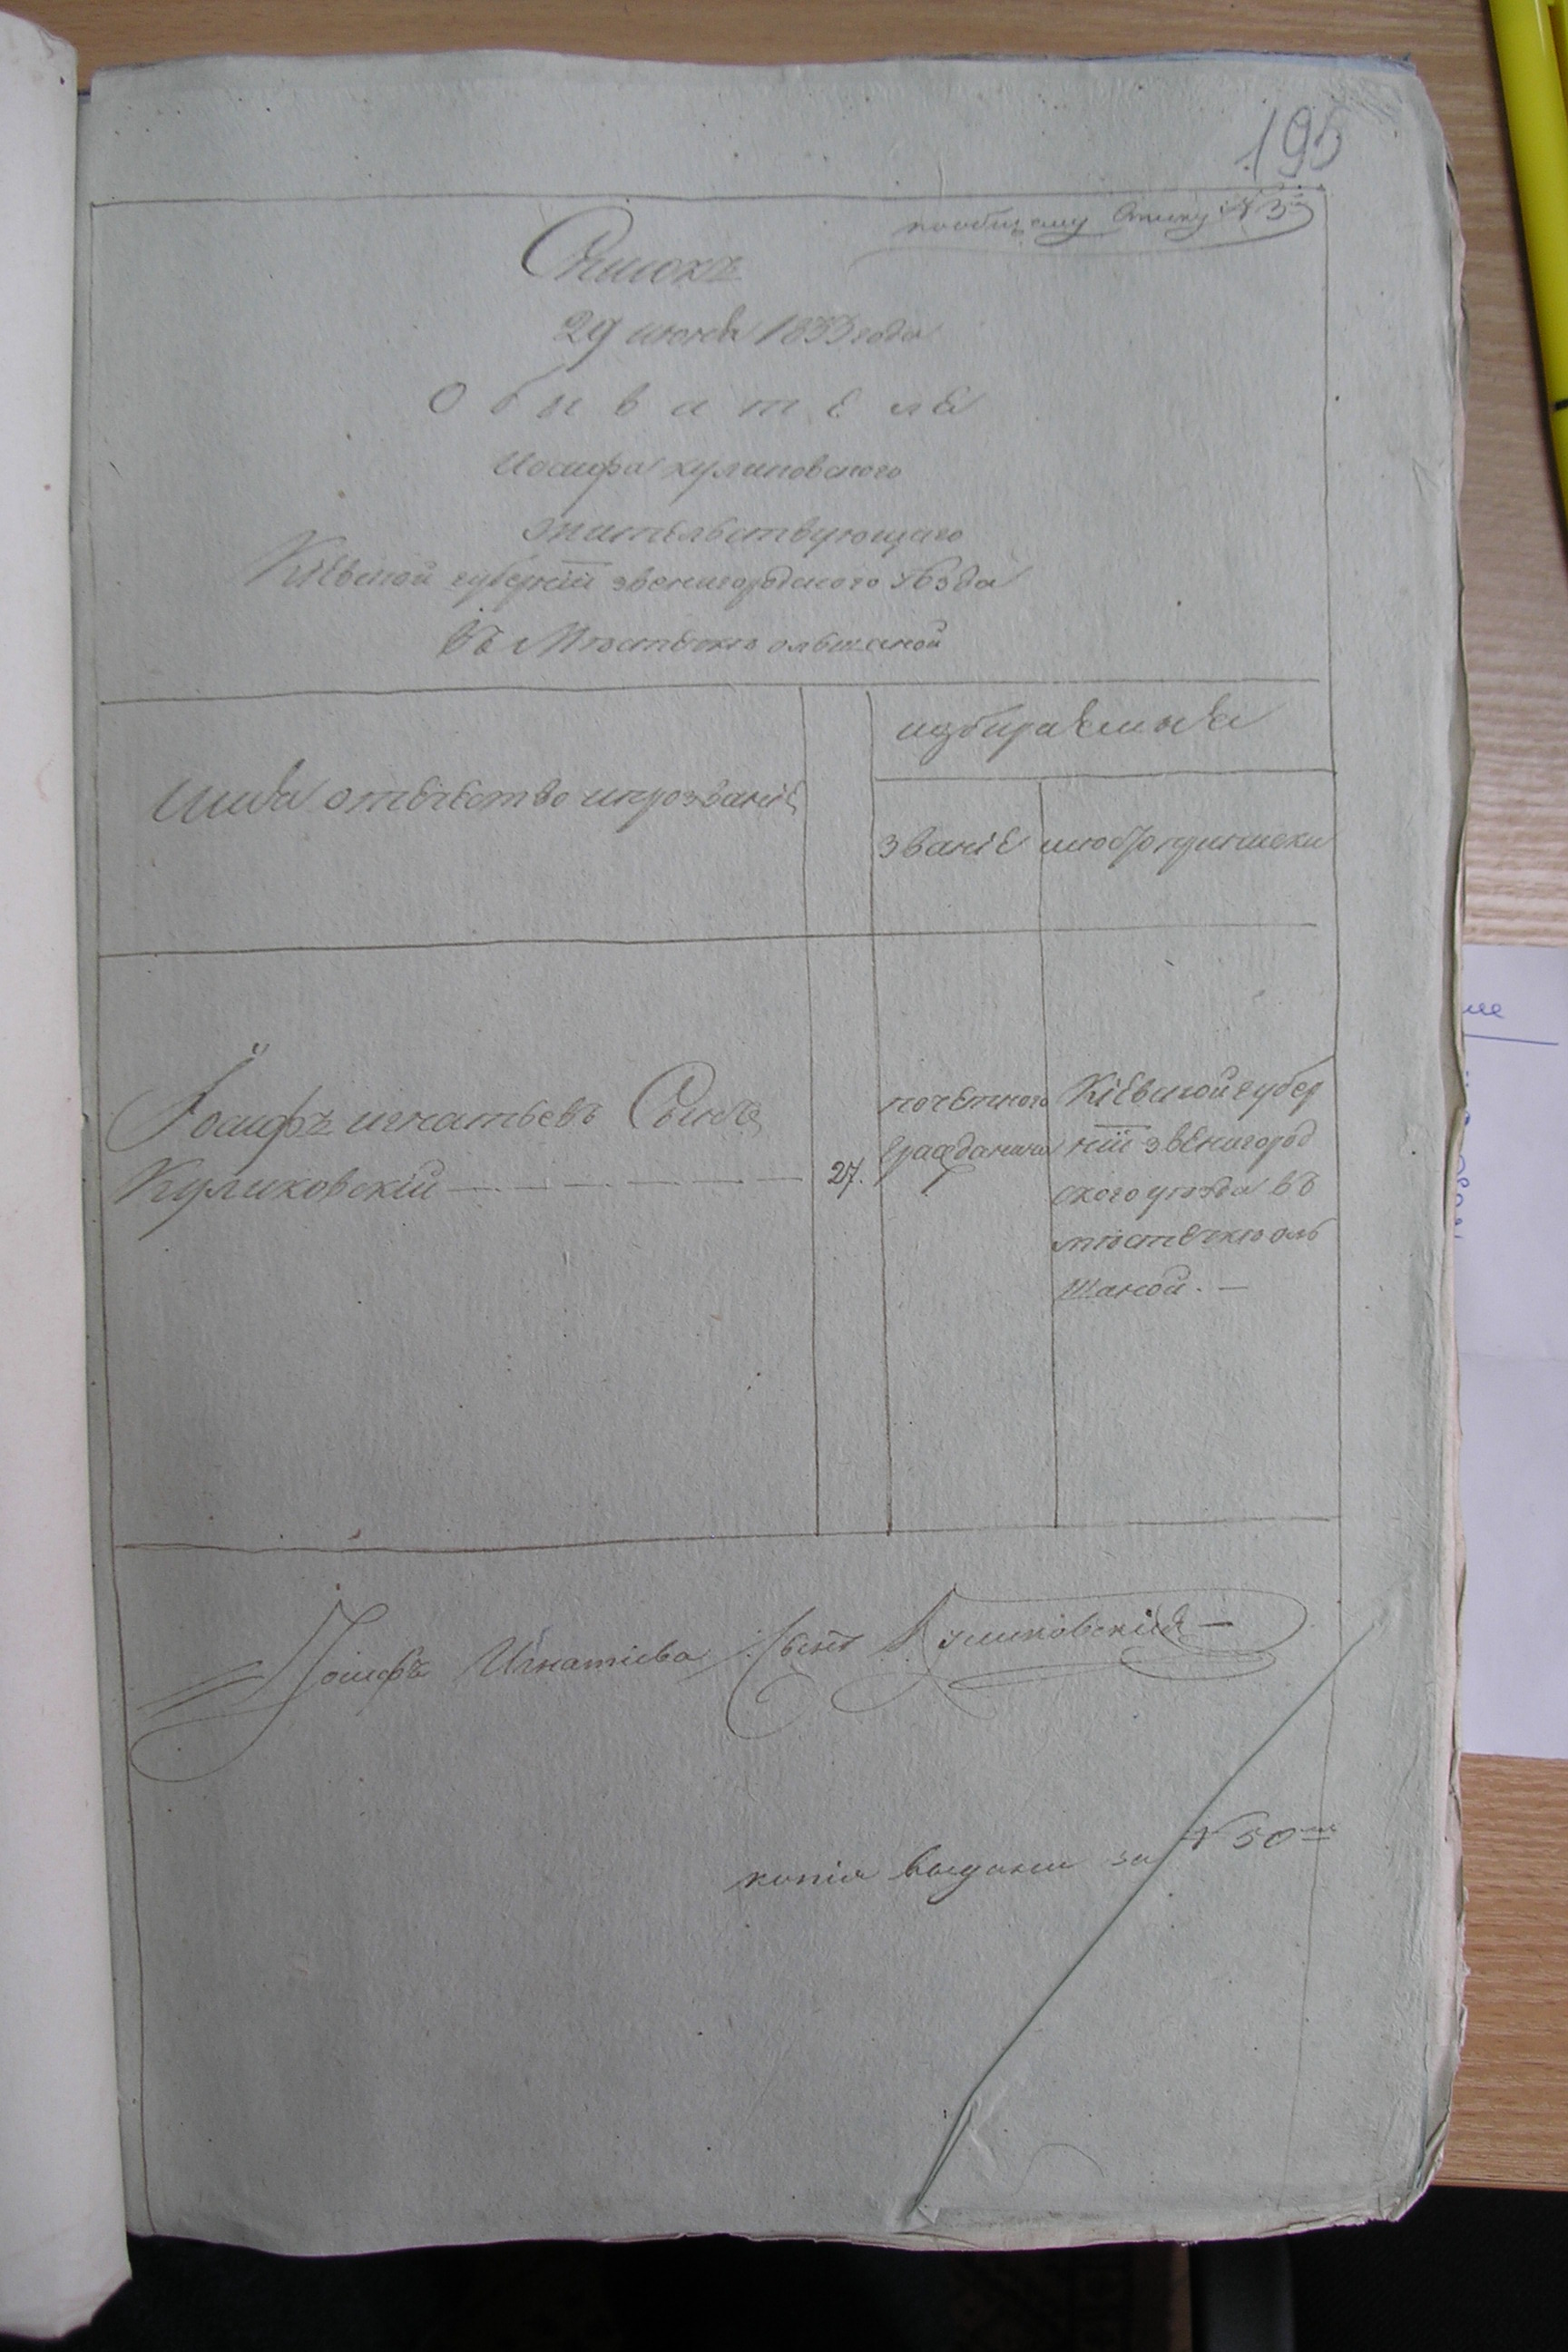 195
пообщему Списку № 3й
Списокъ
29 июня 1833 года
Обывателя
Иосифа куликовского
жительствующаго
Кіевской губерніи звенигородского уѣзда
Въ Мѣстечкѣ ольшаной
избираемыя
Имя отечество ипрозваніе
званіе
иместоприписки
Іосифъ игнатьевъ Сынъ
Куликовскій
27.
почетного
гражданина
Кіевской губер
ніи звенигород
ского уѣзда въ
мѣстечкѣ оль
шаной. —
Іосифъ Игнатіева Сынъ Куликовскій —
копія выдана за № 50мъ